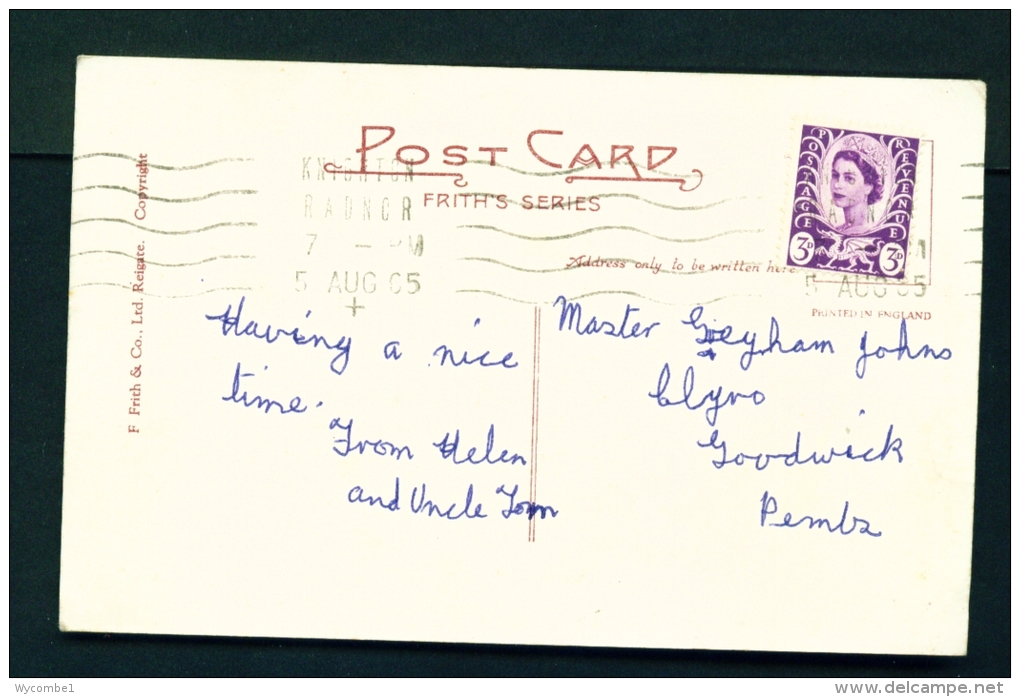 POST CARD
FRITH'S SERIES
KNIGHTON
RADNOR
7 - PM
5 AUG 65
POSTAGE REVENUE
3D 3D
Address only to be written here
5 AUG 65
PRINTED IN ENGLAND
F Frith & Co., Ltd. Reigate. Copyright
Having a nice
time.
From Helen
and Uncle Tom
Master Johns
Clyro
Goodwick
Pembs
Wycombe1
www.delcampe.net